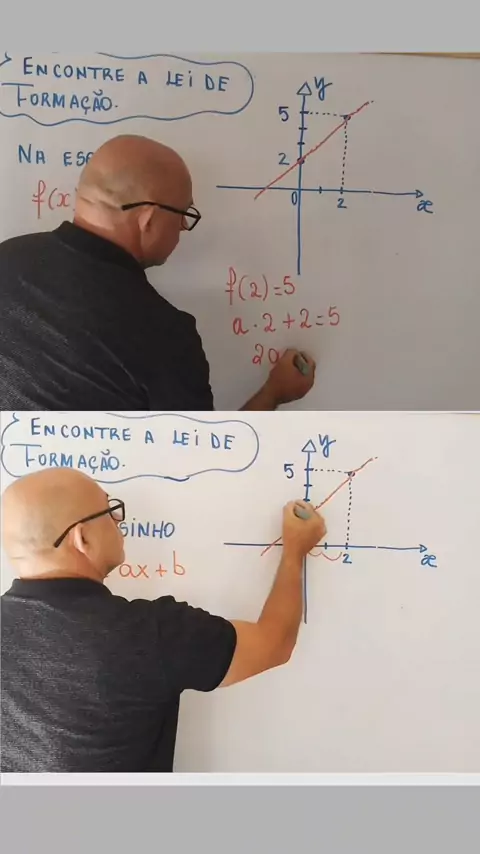 ENCONTRE A LEI DE
FORMAÇÃO.
y
5
2
0
2
x
NA ESC
f(x)
f(2)=5
a · 2 + 2 = 5
2a
ENCONTRE A LEI DE
FORMAÇÃO.
y
5
2
x
SINHO
ax + b